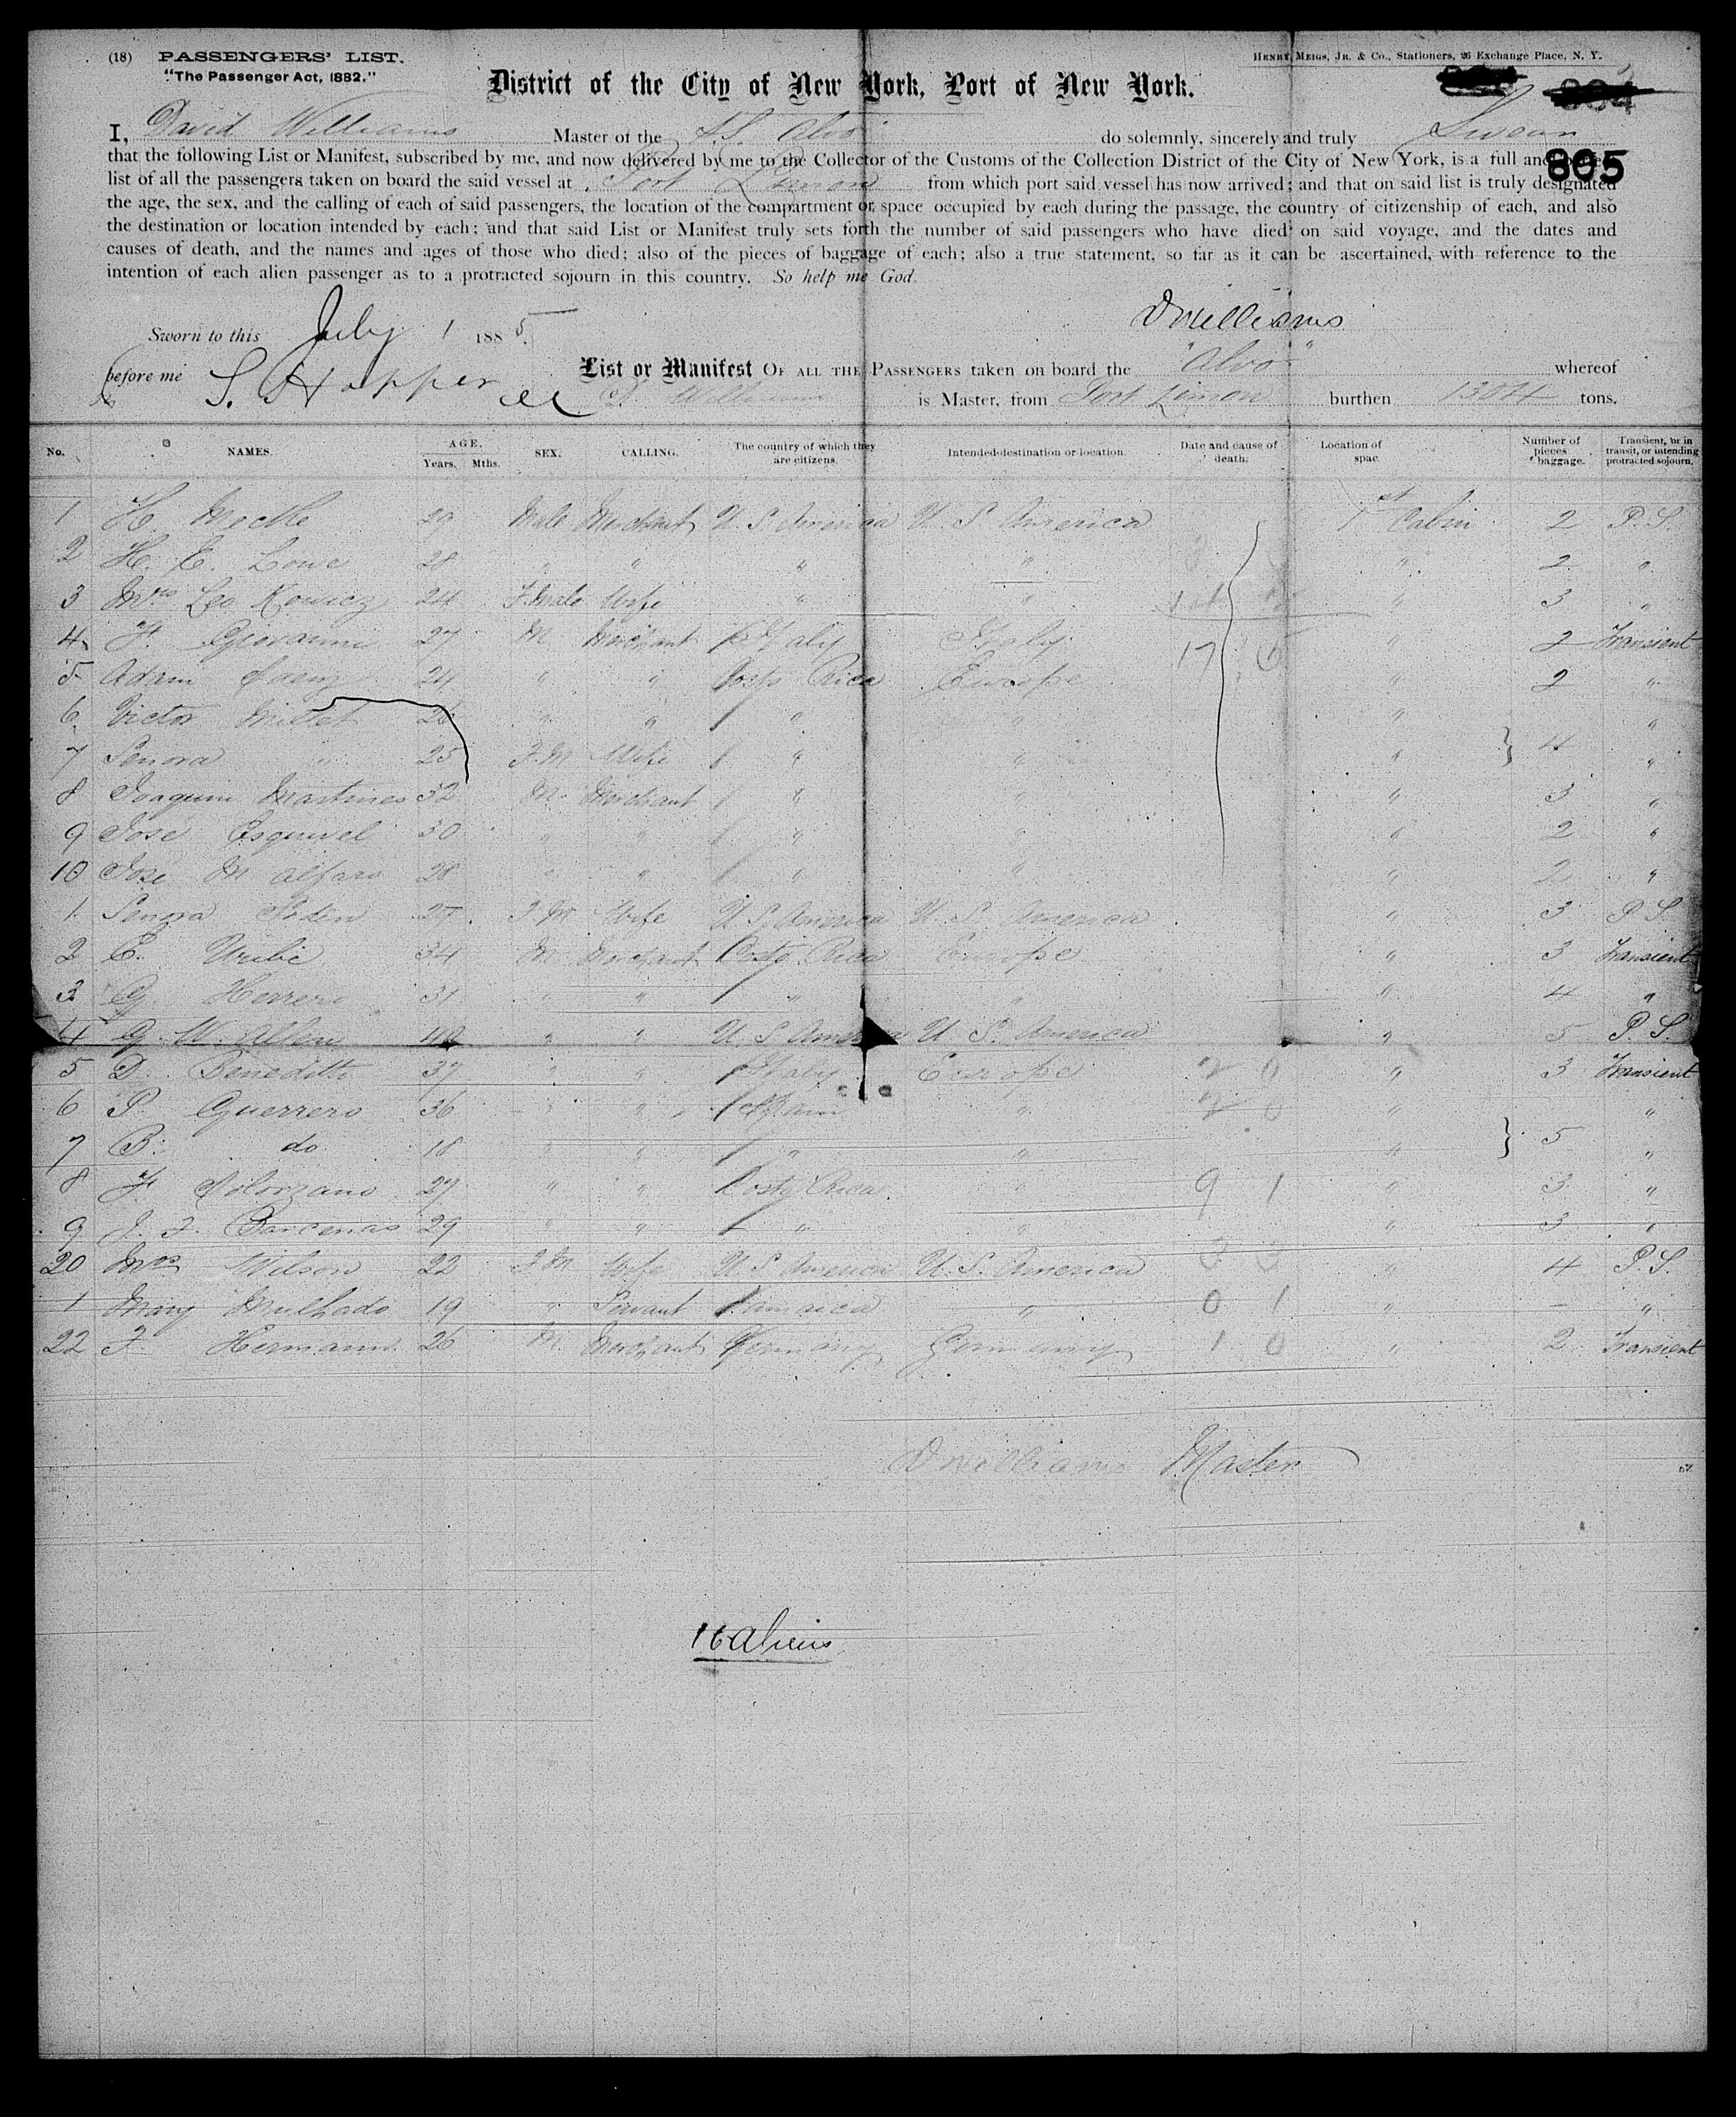 (18) PASSENGERS' LIST.
HENRY MEIGS, JR. & CO., Stationers, 26 Exchange Place, N. Y.
"The Passenger Act, 1882."
District of the City of New York, Port of New York.
I, David Williams Master of the S.S. Alvo do solemnly, sincerely and truly Swear
that the following List or Manifest, subscribed by me, and now delivered by me to the Collector of the Customs of the Collection District of the City of New York, is a full and
805
list of all the passengers taken on board the said vessel at Port Limon from which port said vessel has now arrived; and that on said list is truly designated
the age, the sex, and the calling of each of said passengers, the location of the compartment or space occupied by each during the passage, the country of citizenship of each, and also
the destination or location intended by each; and that said List or Manifest truly sets forth the number of said passengers who have died on said voyage, and the dates and
causes of death, and the names and ages of those who died; also of the pieces of baggage of each; also a true statement, so far as it can be ascertained, with reference to the
intention of each alien passenger as to a protracted sojourn in this country. So help me God.
DWilliams
Sworn to this July 1 1885.
before me S. Hopper
List or Manifest OF ALL THE PASSENGERS taken on board the "Alvo" whereof
D. Williams is Master, from Port Limon burthen 1304 tons.
No. NAMES. AGE. Years. Mths. SEX. CALLING. The country of which they are citizens. Intended destination or location. Date and cause of death. Location of spac. Number of pieces baggage. Transient, or in transit, or intending protracted sojourn.
1 H. 29 Male Merchant U. S America U. S. America 1st Cabin 2 P. S.
2 H. E. Lowe 28 " " " " " 2 "
3 Mrs Leo Kowicz 24 F.Male Wife " " " 3 "
4 F. Giovanni 27 M Merchant Italy Italy 17 " 2 Transient
5 Adam Saenz 24 " " Costa Rica Europe " 2 "
6 Victor Millet 26 " " " " " "
7 Senora " 25 F.M Wife " " " } 4 "
8 Joaquin Martines 32 M. Merchant " " " 3 "
9 Jose Esquivel 30 " " " " " 2 "
10 Jose M Alfaro 28 " " " " " 2 "
1 Senora F.M Wife U S America U. S. America " 3 P S.
2 E. Uribe 34 M Merchant Costa Rica Europe " 3 Transient
3 G. Herrero 31 " " " " " 4 "
4 G. W. Allen " " U. S America U S. America " 5 P. S.
5 D. Beneditto 37 " " Italy Europe 2 0 " 3 Transient
6 P. Guerrero 36 " " Spain " 2 0 " "
7 B. do 18 " " " " " } 5 "
8 F. Solorzano 27 " " Costa Rica " 9 1 " 3 "
9 J. F. Barcenas 29 " " " " " 3 "
20 Mrs Wilson 22 F.M Wife U S America U. S. America " 4 P. S.
1 Mary Mulhado 19 " Servant Jamaica " 0 1 " - "
22 F. Hermann 26 M. Merchant Germany Germany 1 0 " 2 Transient
DWilliams Master
16 aliens